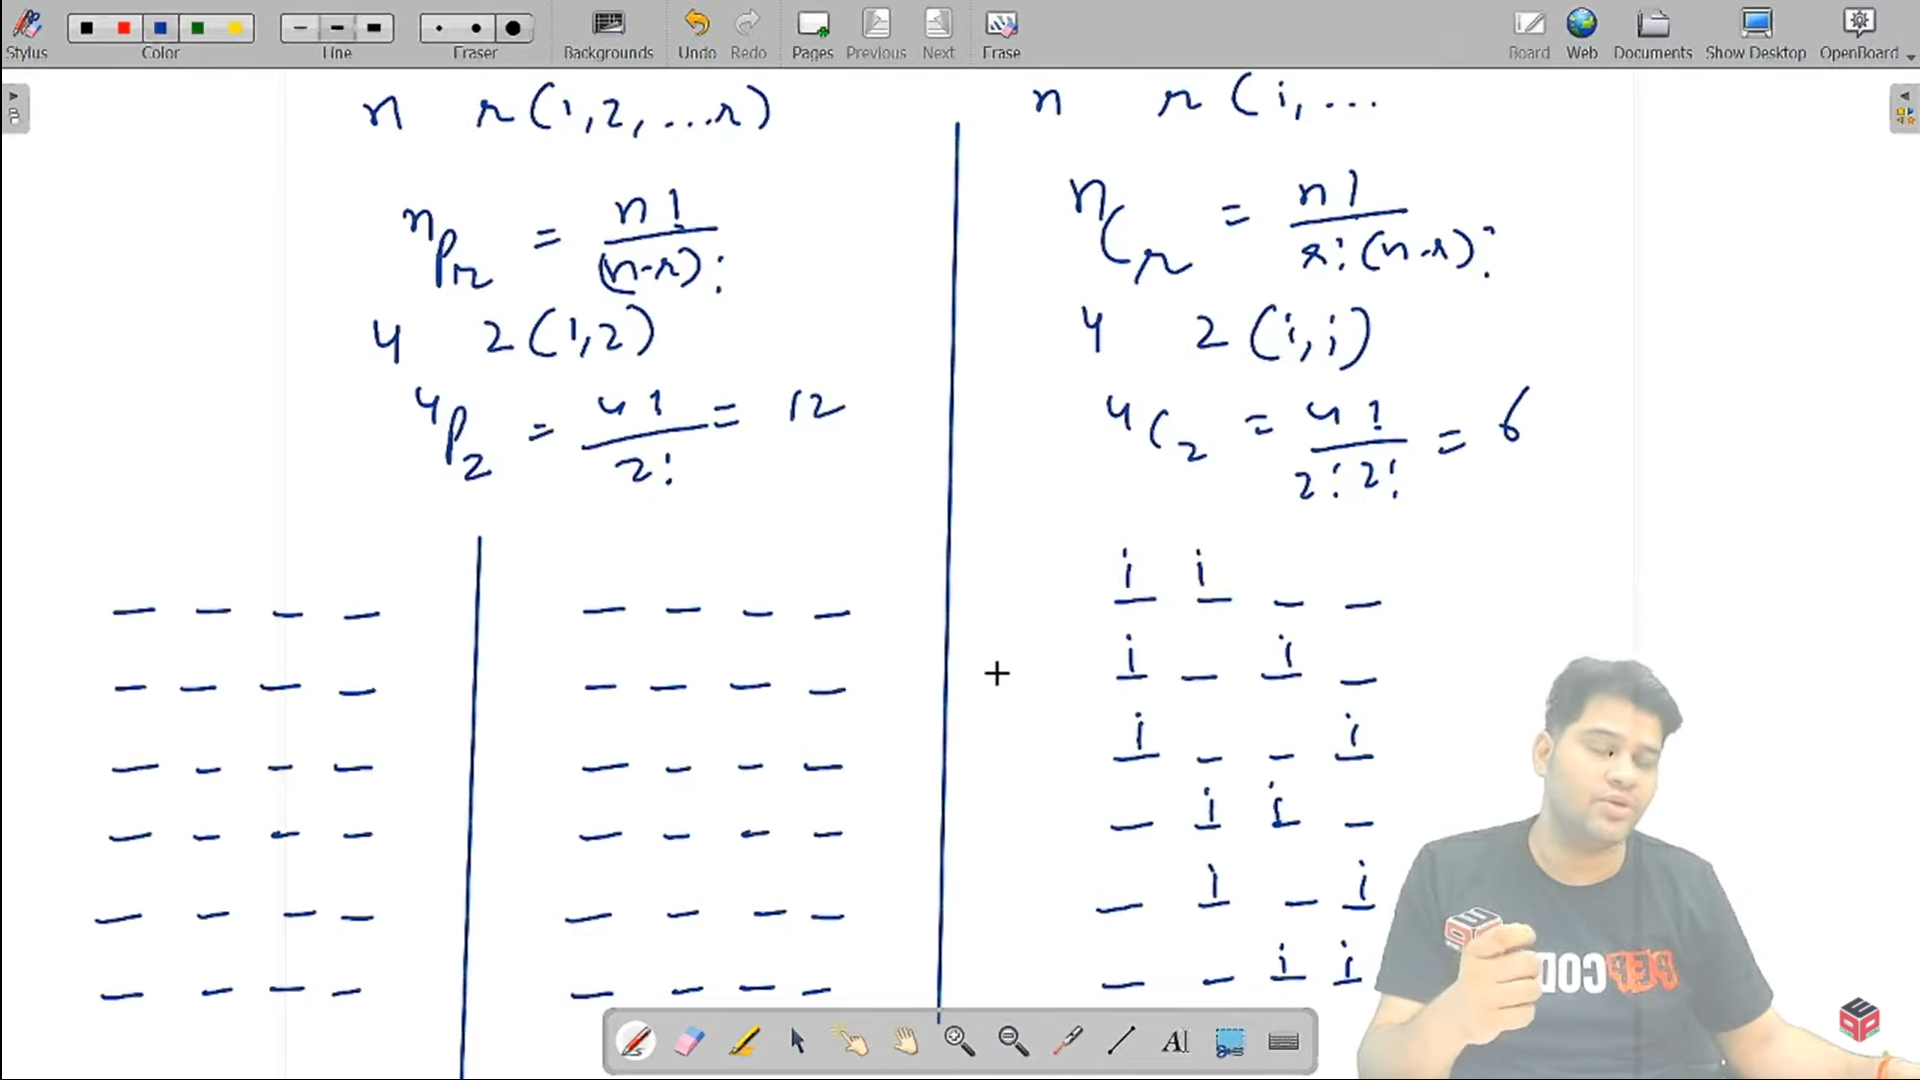 Stylus Color Line Eraser Backgrounds Undo Redo Pages Previous Next Erase Board Web Documents Show Desktop OpenBoard
n r(1,2,...r)
nPr = n!/(n-r)!
4 2(1,2)
4P2 = 4!/2! = 12
n r(i,...
nCr = n!/r!(n-r)!
4 2(i,i)
4C2 = 4!/2!2! = 6
i i _ _
i _ i _
i _ _ i
_ i i _
_ i _ i
_ _ i i
_ _ _ _ _ _ _ _
_ _ _ _ _ _ _ _
_ _ _ _ _ _ _ _
_ _ _ _ _ _ _ _
_ _ _ _ _ _ _ _
_ _ _ _ _ _ _ _
PEPCOD
AI